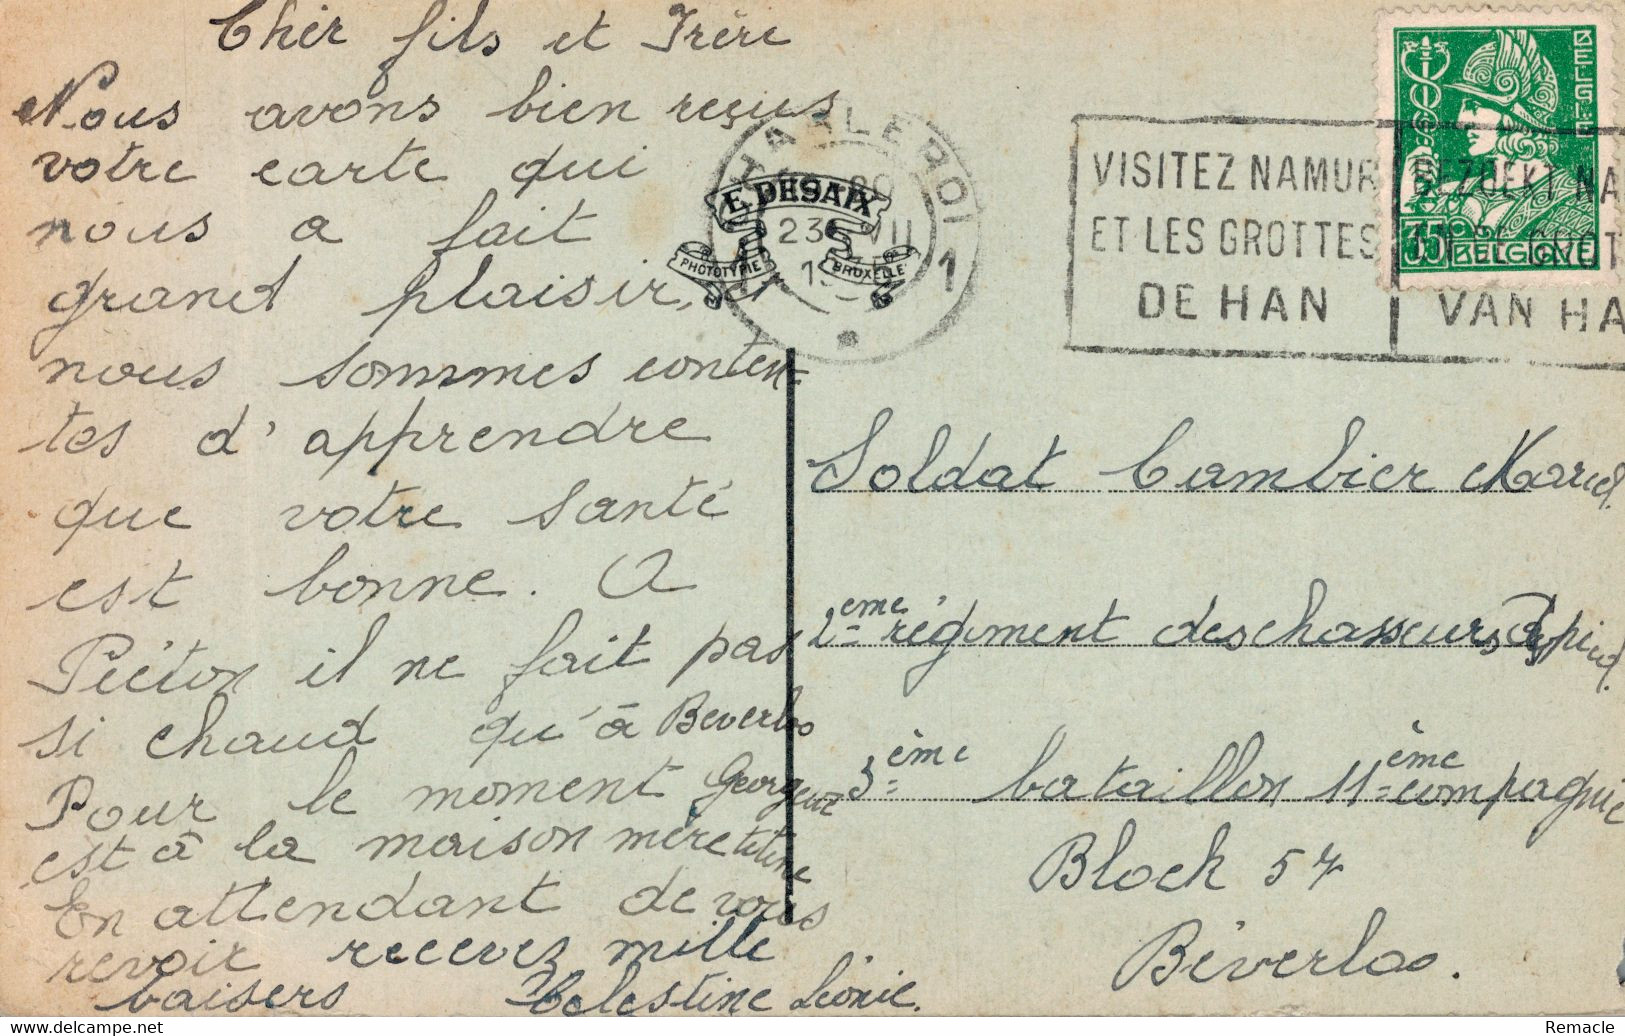 Cher fils et Frère
Nous avons bien reçus
votre carte qui
nous a fait
grand plaisir, et
nous sommes conten-
tes d'apprendre
que votre santé
est bonne. A
Piéton il ne fait pas
si chaud qu'à Beverloo
Pour le moment Georgeuz
est à la maison mère titine
En attendant de vous
revoir recevez mille
baisers Célestine Léonie.
CHARLEROI
23 VII
1
1
E. DESAIX
PHOTOTYPIE
BRUXELLE
VISITEZ NAMUR
ET LES GROTTES
DE HAN
BEZOEKT NA
VAN HA
BELGIQUE
35 BELGIQUE
Soldat Cambier Marcel
2ème régiment des chasseurs à pied.
3ème bataillon 11ème compagnie
Block 57
Béverloo.
Remacle
delcampe.net